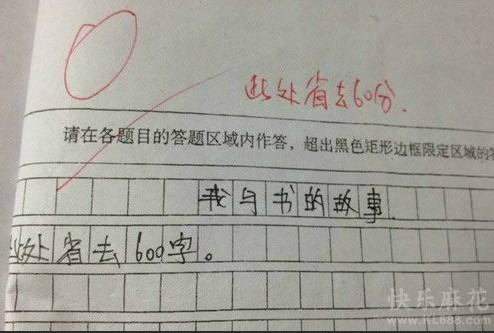 此处省去60分.
请在各题目的答题区域内作答，超出黑色矩形边框限定区域的答
我与书的故事.
此处省去600字。
快乐麻花
www.KL688.com